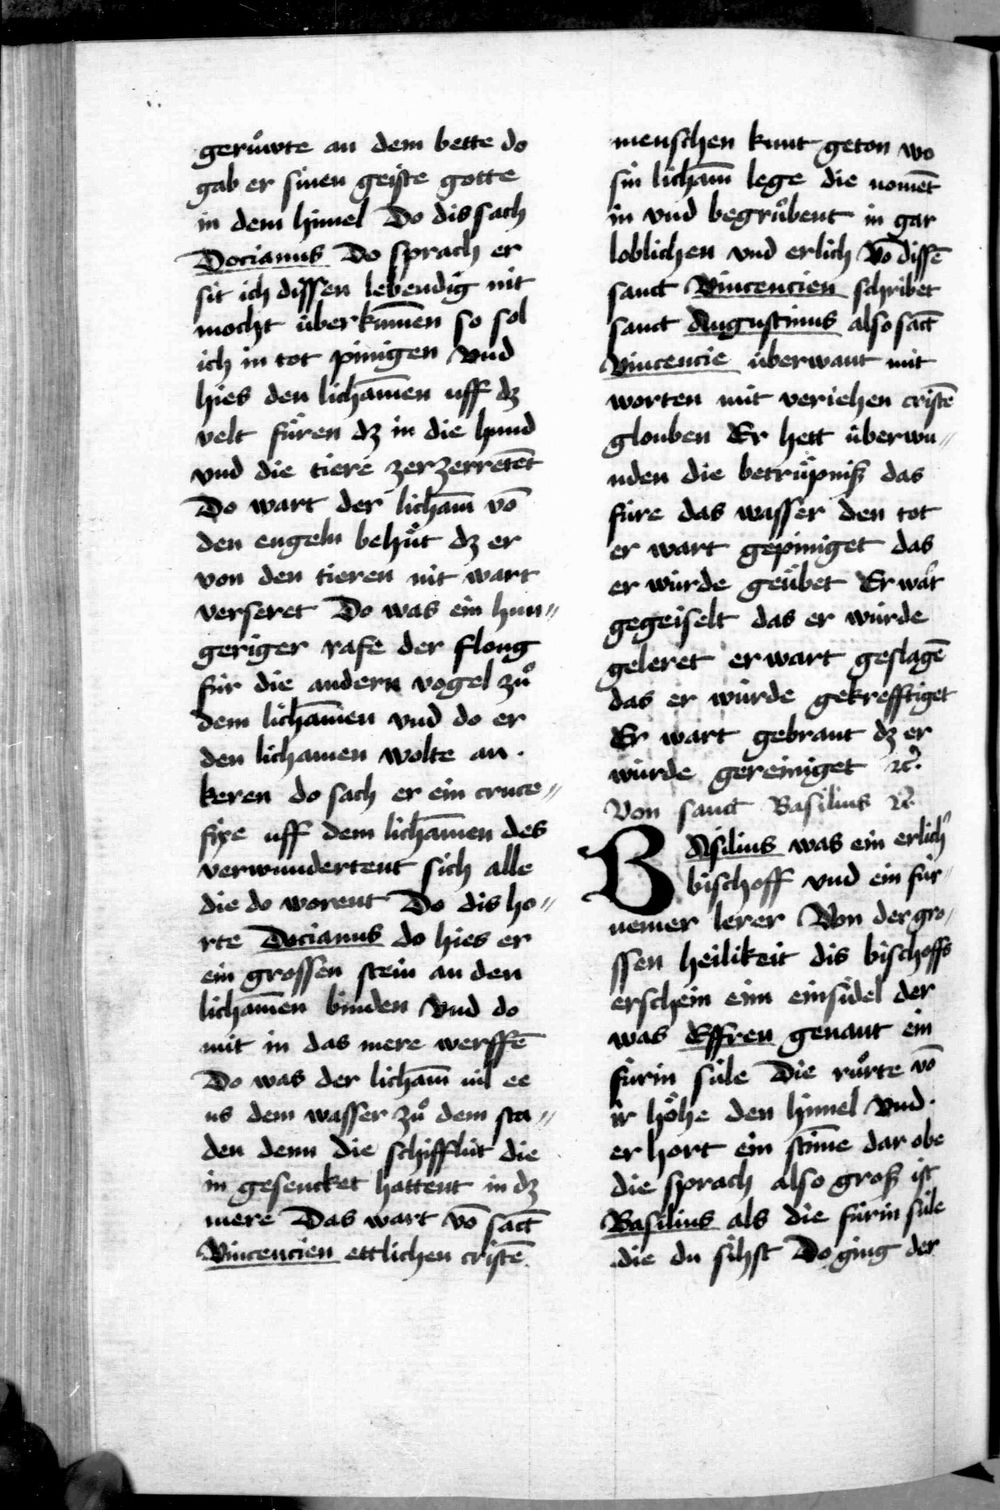 geruͦwte an dem bette do
gab er sinen geiste gotte
in dem himel Do dis sach
Docianus Do sprach er
sit ich dissen lebendig nit
mocht überkum̄en so sol
ich in tot pinigen Vnd
hies den licham̄en uff dz
velt fuͤren dz in die hund
vnd die tiere zerzerretēt
Do wart der licham̄ vō
den engeln behuͤt dz er
von den tieren nit wart
verseret Do was ein hun⸗
geriger rafe der floug
für die andern vogel zuͦ
dem licham̄en vnd do er
den lichamen wolte an
keren do sach er ein cruce⸗
fixe uff dem licham̄en des
verwundertent sich alle
die do worent Do dis ho⸗
rte Docianus do hies er
ein grossen stein an den
licham̄en binden Vnd do
mit in das mere werffē
Do was der licham̄ uil ee
us dem wasser zuͦ dem sta⸗
den denn die schifflüt die
in gesencket hattent in dz
mere Das wart vō sāct
Vincencien ettlichen cristē
menschen kunt geton wo
sin licham̄ lege die nomēt
in vnd begruͦbent in gar
loblichen vnd erlich Vō dissē
sanct Vincencien schribet
sanct Augustinus also sāct
Vincencie überwant mit
worten mit veriehen cristē
glouben Er hett überwu⸗
nden die betruͤpniß das
füre das wasser den tot
er wart gepiniget das
er würde geuͤbet Er wart
gegeiselt das er würde
geleret er wart geslagē
das er würde gekrefftiget
Er wart gebrant dz er
würde gereiniget ꝛc̄.
Von sanct Basilius ꝛc̄
BAsilius was ein erlich̾
bischoff vnd ein für⸗
nemer lerer Von der gro⸗
ssen heilikeit dis bischoffs
erschein eim einsidel der
was Effren genant ein
fürin süle Die ruͦrte vō
ir hoͤhe den himel Vnd
er hort ein stim̄e dar obe
die sprach also groß ist
Basilius als die fürin süle
die du sihst Do ging der